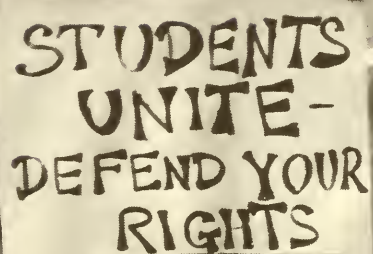 STUDENTS
UNITE-
DEFEND YOUR
RIGHTS